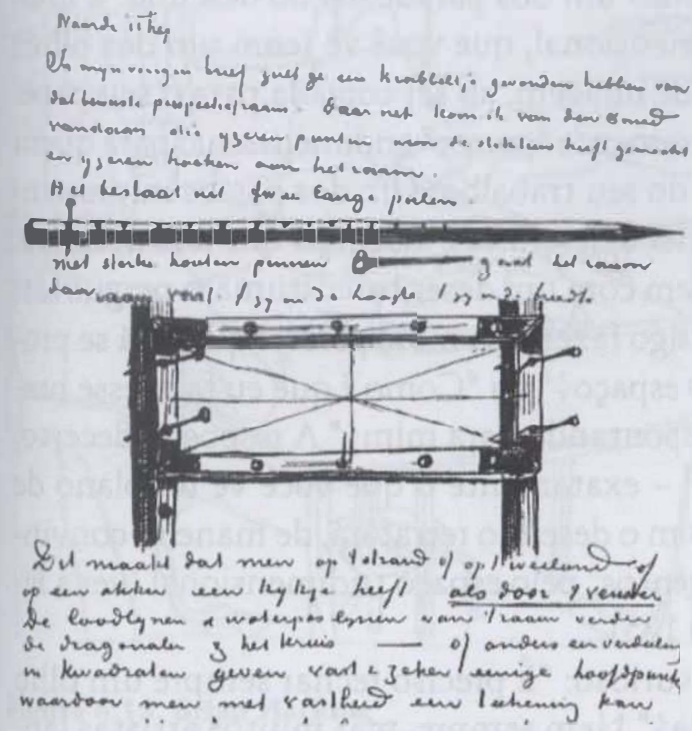 Waarde Theo,
In mijn vorigen brief zult ge een krabbeltje gevonden hebben van
dat bewuste perspectiefraam. Daar net kom ik van den smid
vandaan die yzeren punten aan de stokken heeft gemaakt
en yzeren hoeken aan het raam.
Het bestaat uit twee lange palen.
met sterke houten pennen gaat het raam
daaraan vast 't zy in de hoogte 't zy in de breedte.
Dit maakt dat men op 't strand of op 't weiland of
op een akker een kykje heeft als door 't venster
De loodlynen & waterpaslynen van 't raam verder
de diagonalen & het kruis — of anders een verdeeling
in kwadraten geven vast & zeker eenige hoofdpunt
waardoor men met vastheid een teekening kan